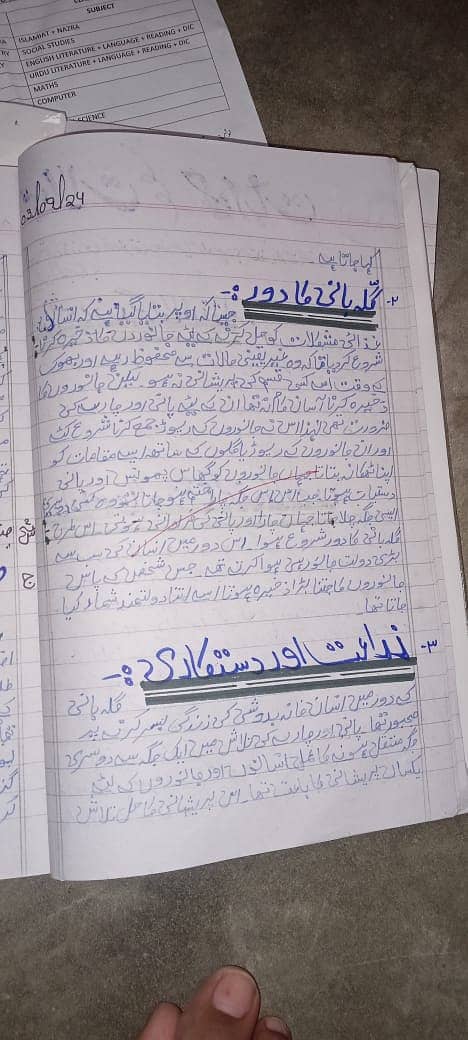 SUBJECT
ISLAMIAT + NAZRA
SOCIAL STUDIES
ENGLISH LITERATURE + LANGUAGE + READING + DIC
URDU LITERATURE + LANGUAGE + READING + DIC
MATHS
COMPUTER
SCIENCE
03/09/24
کہا جاتا ہے
۲۔ گلہ بانی کا دور :-
جیسا کہ اوپر بتایا گیا ہے کہ انسان نے
غذائی مشکلات کو حل کرنے کے لئے جانوروں کا ذخیرہ کرنا
شروع کردیا تاکہ وہ غیر یقینی حالات سے محفوظ رہے اور بھوک
کے وقت اسے کسی قسم کی پریشانی نہ ہو۔ لیکن جانوروں کا
ذخیرہ کرنا آسان کام نہ تھا ان کے لئے پانی اور چارے کی
ضرورت تھی لہٰذا اس نے جانوروں کے ریوڑ جمع کرنا شروع کئے
اور اپنے جانوروں کے ریوڑ یا گلوں کے ساتھ ایسے مقامات کو
اپنا ٹھکانہ بناتا جہاں جانوروں کو گھاس پھونس اور پانی
دستیاب ہوتا جب اس جگہ چارا ختم ہو جاتا تو وہ کسی دوسری
ایسی جگہ چلا جاتا جہاں چارا اور پانی کی فراوانی ہوتی۔ اس طرح
گلہ بانی کا دور شروع ہوا۔ اس دور میں انسان کی سب سے
بڑی دولت جانور ہی ہوا کرتے تھے۔ جس شخص کے پاس
جانوروں کا جتنا بڑا ذخیرہ ہوتا اسے اتنا دولتمند شمار کیا
جاتا تھا۔
۳۔ زراعت اور دستکاری :-
گلہ بانی
کے دور میں انسان خانہ بدوشی کی زندگی بسر کرنے پر
مجبور تھا۔ پانی اور چارے کی تلاش میں ایک جگہ سے دوسری
جگہ منتقل ہونے کا عمل انسانوں اور جانوروں کے لئے
یکساں پریشانی کا باعث تھا۔ اس پریشانی کا حل تلاش